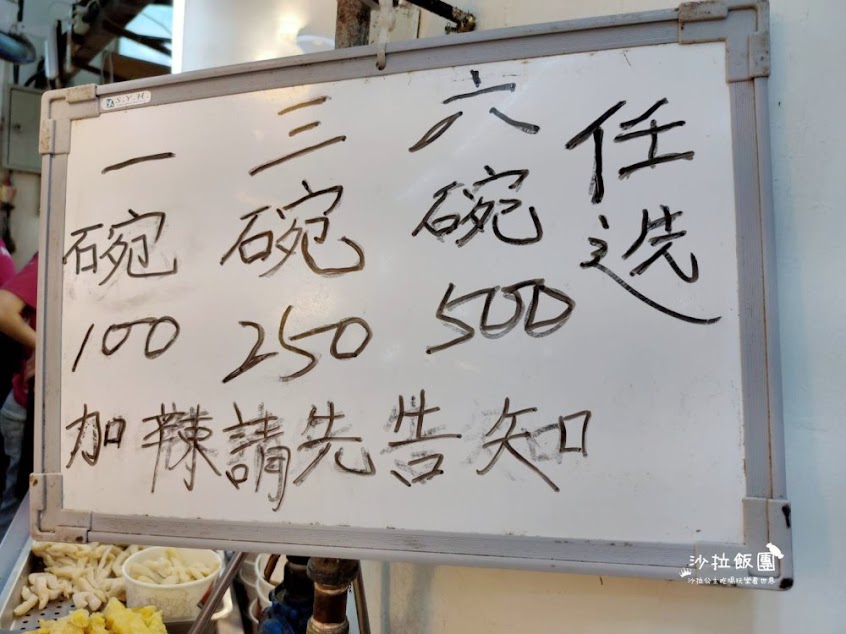 S.Y.H.
一碗100
三碗250
六碗500
任选
加辣請先告知
沙拉飯團
沙拉公主吃喝玩樂看世界